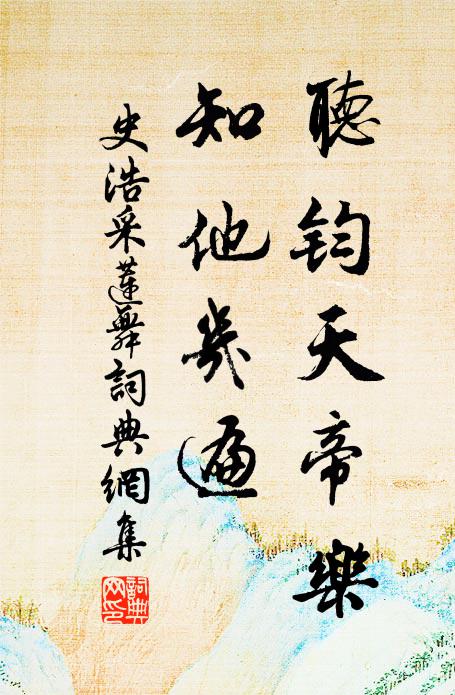 聽鈞天帝樂
知他幾遍
史浩采蓮舞詞典網集
詞典网印